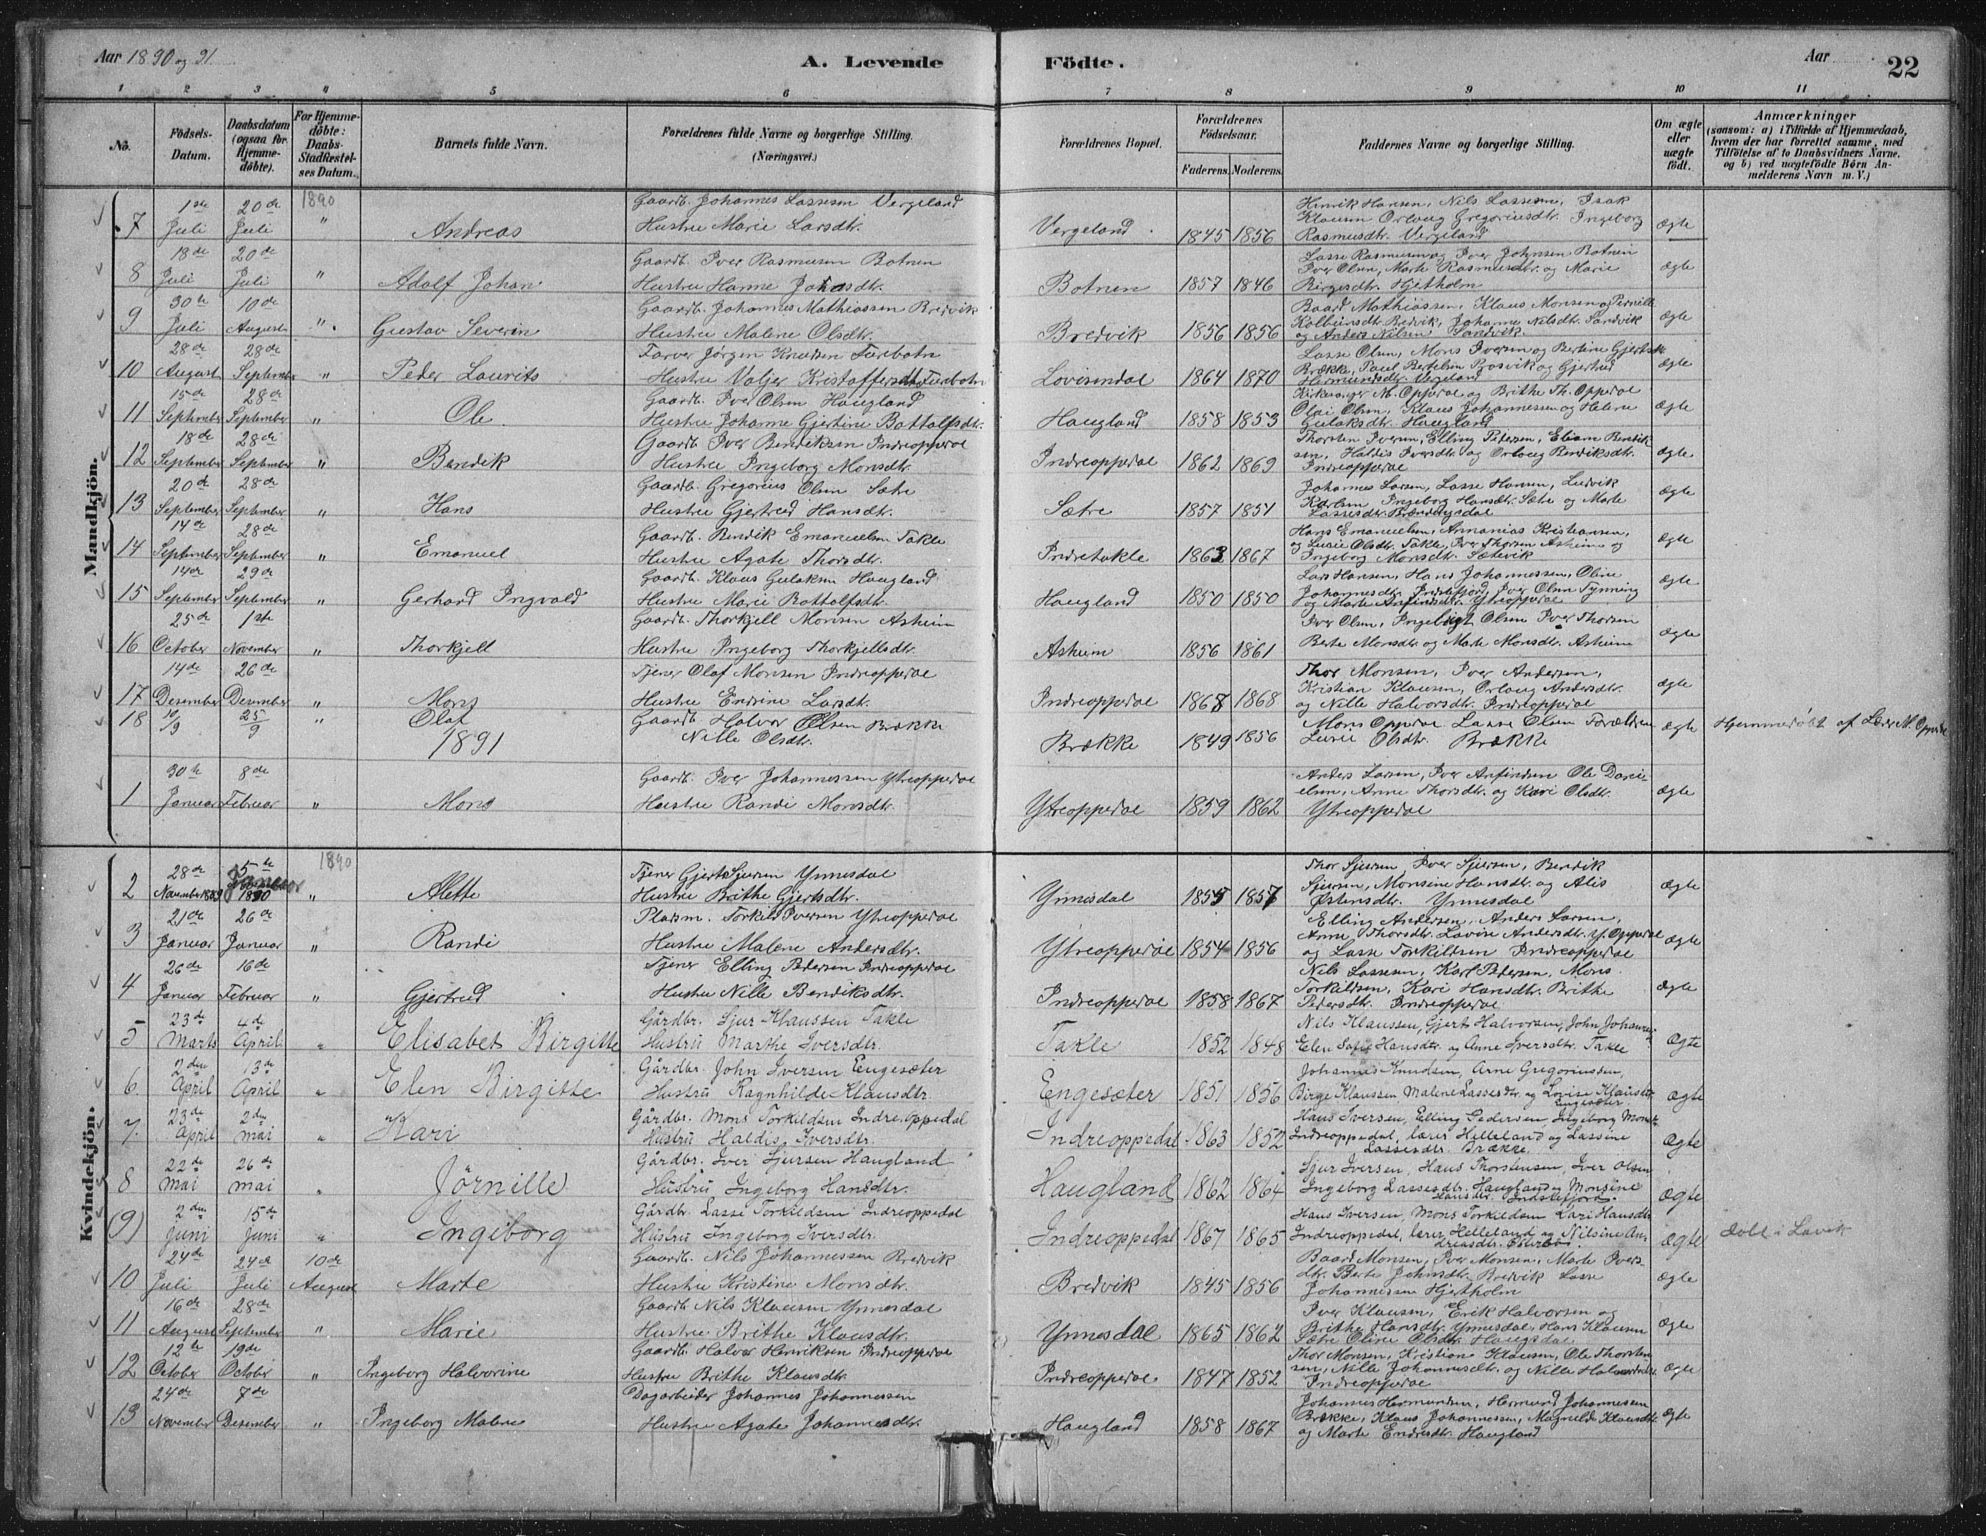 Aar 1890 og 91
A. Levende Födte.
Aar
22
1 2 3 4 5 6 7 8 9 10 11
No.
Födsels-Datum.
Daabsdatum (ogsaa for Hjemme-döbte).
For Hjemme-döbte: Daabs-Stadfæstel-ses Datum.
Barnets fulde Navn.
Forældrenes fulde Navne og borgerlige Stilling. (Næringsvei.)
Forældrenes Bopæl.
Forældrenes Födselsaar.
Faderens. Moderens.
Faddernes Navne og borgerlige Stilling.
Om ægte eller uægte födt.
Anmærkninger
(saasom: a) i Tilfælde af Hjemmedaab, hvem der har forrettet samme, med Tilföielse af to Daabsvidners Navne, og b) ved uægtefödte Börn An-melderens Navn m. V.)
Mandkjön.
1890
7 1ste Juli 20de Juli " Andreas
Gaardb. Johannes Lassesen Vergeland
Hustru Marie Larsdtr.
Vergeland. 1845 1856
Henrik Hansen, Nils Lassesen, Isak
Klausen Orloug Gregoriusdtr. Ingeborg
Rasmusdtr. Vergeland
ægte
8 18de Juli 20de Juli " Adolf Johan
Gaardb. Iver Rasmusen Botnen
Hustru Hanne Johsdtr.
Botnen 1857 1846
Lasse Rasmusen og Iver Johnsen Botnen
Iver Olsen, Marte Rasmusdtr. og Marie
Birgesdtr. Hjetholm
ægte
9 30te Juli 10de August " Gustav Severin
Gaardb. Johannes Mathiassen Bredvik
Hustru Malene Olsdtr.
Bredvik 1856 1856
Baard Mathiassen, Klaus Monsen og Pernille
Kolbeinsdtr. Bredvik, Johanne Nilsdtr. Sandvik
og Anders Nilsen Sandvik.
ægte
10 28de August 28de September " Peder Laurits
Farver Jörgen Knudsen Furebotn
Hustru Valjer Kristoffersdtr. Furebotn
Lovisendal 1864 1870
Lasse Olsen, Mons Iversen og Bertine Gjertsdtr.
Brække, Paul Bertelsen Risvik og Gjertrud
Hermundsdtr. Vergeland
ægte
11 15de September 28de September " Ole
Gaardb. Iver Olsen Haugland
Hustru Johanne Gjertine Bottolfsdtr.
Haugland 1858 1853
Kirkesanger M. Oppedal og Brithe Th. Oppedal
Olai Olsen, Klaus Johannessen og Helene
Gulaksdtr. Haugland
ægte
12 18de September 28de September " Bendik
Gaardb. Iver Bendiksen Indreoppedal
Hustru Ingeborg Monsdtr.
Indreoppedal 1862 1869
Thorsten Iversen, Elling Pedersen, Eliane Bendik-
sen, Haldis Iversdtr. og Orloug Bendiksdtr.
Indreoppedal
ægte
13 20de September 28de September " Hans
Gaardb. Gregorius Olsen Sætre
Hustru Gjertrud Hansdtr.
Sætre 1857 1851
Johannes Larsen, Lasse Hansen, Ludvik
Karlsen, Ingeborg Hansdtr. Sætre og Marte
Lassesdtr. Brændingsdal
ægte
14 14de September 28de September " Emanuel
Gaardb. Bendik Emanuelsen Takle
Hustru Agate Thorsdtr.
Indretakle 1863 1867
Hans Emanuelsen, Annanias Kristiansen,
og Lusie Olsdtr. Takle, Iver Thorsen Asheim og
Ingeborg Monsdtr. Sætevik
ægte
15 14de September 29de September " Gerhard Ingvald
Gaardb. Klaus Gulaksen Haugland
Hustru Marie Bottolfsdtr.
Haugland 1850 1850
Lars Hansen, Hans Johannessen, Oline
Johannesdtr. Indrefjord, Iver Olsen Tynning
og Marte Anfindsdtr. Ytreoppedal
ægte
16 25de October 1ste November " Thorkjell
Gaardb. Thorkjell Monsen Asheim
Hustru Ingeborg Thorkjellsdtr.
Asheim 1856 1861
Iver Olsen, Ingeligt Olsen Iver Thorsen
Berte Monsdtr. og Marte Monsdtr. Asheim
ægte
17 14de Desember 26de Desember " Mons
Tjener Olaf Monsen Indreoppedal
Hustru Endrine Larsdtr.
Indreoppedal 1867 1868
Thor Monsen, Iver Andersen,
Kristian Klausen, Orloug Andersdtr.
og Nille Halvorsdtr. Indreoppedal
ægte
18 10/9 25/9 " Olaf
Gaardb. Halvor Olsen Brække
Nille Olsdtr.
Brække 1849 1856
Mons Oppedal Lasse Olsen Forældrene
Lusie Olsdtr. Brække
ægte
Hjemmedöbt af Lærer M. Oppedal
1891
1 30te Januar 8de Februar " Mons
Gaardb. Iver Johannessen Ytreoppedal
Hustru Randi Monsdtr.
Ytreoppedal 1859 1862
Anders Larsen, Iver Anfindsen Ole Dani-
elsen, Anne Thorsdtr. og Kari Olsdtr.
Ytreoppedal
ægte
Kvindekjön.
1890
2 28de November 1889 5te Januar 1890 " Alette
Tjener Gjert Sjursen Ynnesdal
Hustru Brithe Gjertsdtr.
Ynnesdal 1855 1857
Thor Sjursen Iver Sjursen, Bendik
Sjursen, Monsine Hansdtr. og Alis
Østensdtr. Ynnesdal
ægte
3 21de Januar 26de Januar " Randi
Pladsm. Torkild Iversen Ytreoppedal
Hustru Malene Andersdtr.
Ytreoppedal 1854 1856
Elling Andersen, Anders Larsen,
Anne Thorsdtr. Lovise Andersdtr. Y. Oppedal
og Lasse Torkildsen Indreoppedal
ægte
4 26de Januar 16de Februar " Gjertrud
Tjener Elling Pedersen Indreoppedal
Hustru Nille Bendiksdtr.
Indreoppedal 1858 1867
Nils Lassesen, Karl Pedersen, Mons
Torkildsen, Kari Hansdtr. Brithe
Pedersdtr. Indreoppedal
ægte
5 23de Marts 4de April " Elisabet Birgitte
Gårdbr. Sjur Klaussen Takle
Hustru Marthe Iversdtr.
Takle 1852 1848
Nils Klaussen, Gjert Halvorsen, John Johannes
Elen Sofie Hansdtr. og Anne Iversdtr. Takle
ægte
6. 2den April 13de April " Elen Birgitte
Gårdbr. John Iversen Engesæter
Hustru Ragnhilde Klausdtr.
Engesæter 1851 1856
Johannes Knudsen, Arne Gregoriussen,
Birge Klaussen Malene Lassesdtr. og Lovise Klausdtr.
Engesæter
ægte
7. 23de April 2den mai " Kari
Gårdbr. Mons Torkildsen Indreoppedal
Hustru Haldis Iversdtr.
Indreoppedal 1863 1852
Hans Iversen, Elling Pedersen, Ingeborg Mons-
Indreoppedal, lærer Helleland og Lassine
Lassesdtr. Brække.
ægte
8 22de mai 26de mai " Jörnille
Gårdbr. Iver Sjursen Haugland
Hustru Ingeborg Hansdtr.
Haugland 1862 1864
Sjur Iversen, Hans Thorstensen, Iver Olsen
Ingeborg Lassesdtr. Haugland og Monsine
Hansdtr. Indrefjord.
ægte
(9) 2den Juni 15de Juni " Ingeborg
Gårdbr. Lasse Torkildsen Indreoppedal
Hustru Ingeborg Iversdtr.
Indreoppedal 1867 1865
Hans Iversen, Mons Torkildsen Kari Hansdtr.
Indreoppedal, lærer Helleland og Nilsine An-
dreasdtr.
ægte
döbt i Lavik
10 24de Juli 24de Juli 10de August Marte
Gaardb. Nils Johannessen Bredvik
Hustru Kristine Monsdtr.
Bredvik 1845 1856
Baard Monsen, Iver Monsen, Marte Ivers-
dtr. Berte Johnsdtr. Bredvik Lasse
Johannessen Hjetholm
ægte
11 16de August 28de September " Marie
Gaardb. Nils Klausen Ynnesdal
Hustru Brithe Klausdtr.
Ynnesdal 1865 1862
Iver Klausen, Erik Halvorsen og
Brithe Hansdtr. Ynnesdal, Hans Klausen
Sætre Oline Olsdtr. Haugsdal
ægte
12 12te October 19de October " Ingeborg Halvorine
Gaardb. Halvor Henriksen Indreoppedal
Hustru Brithe Klausdtr.
Indreoppedal 1847 1852
Thor Monsen, Kristian Klausen, Ole Thorsten-
sen, Nille Johannesdtr. og Nille Halvorsdtr.
Indreoppedal
ægte
13 24de November 7de Desember " Ingeborg Malene
Dagarbeider Johannes Johannessen
Hustru Agate Johannesdtr.
Haugland 1858 1867
Johannes Hermundsen, Hermund Johannessen
Brække, Klaus Johannessen, Magnilde Klausdtr.
og Marte Endresdtr. Haugland
ægte